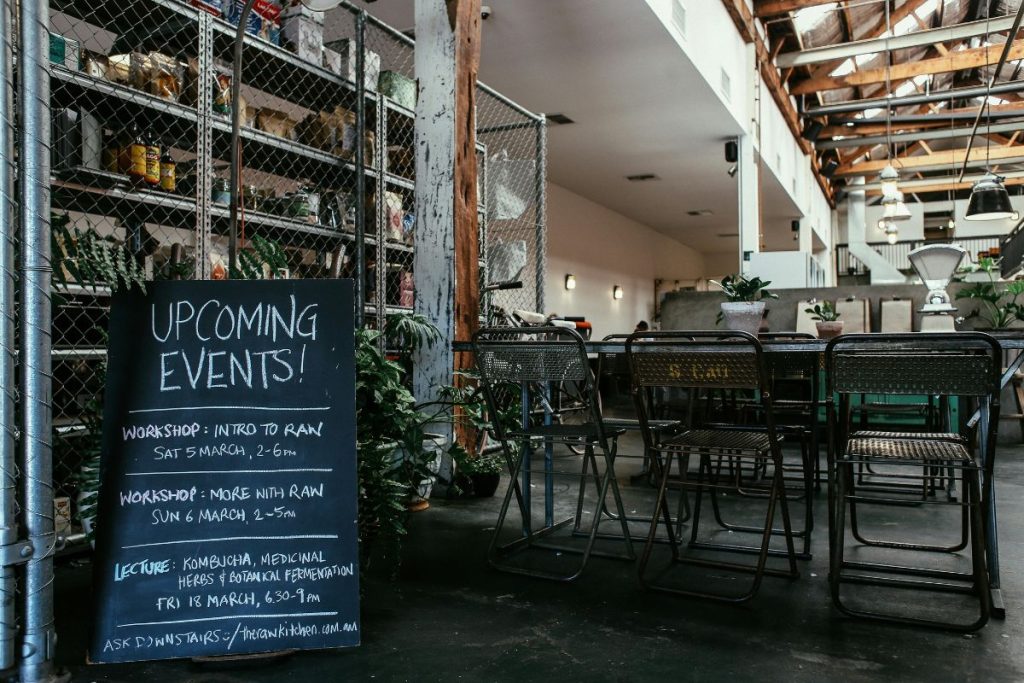 UPCOMING
EVENTS!
WORKSHOP: INTRO TO RAW
SAT 5 MARCH, 2-6PM
WORKSHOP: MORE WITH RAW
SUN 6 MARCH, 2-5PM
LECTURE: KOMBUCHA, MEDICINAL
HERBS & BOTANICAL FERMENTATION
FRI 18 MARCH, 6.30-9PM
ASK DOWNSTAIRS :/therawkitchen.com.au